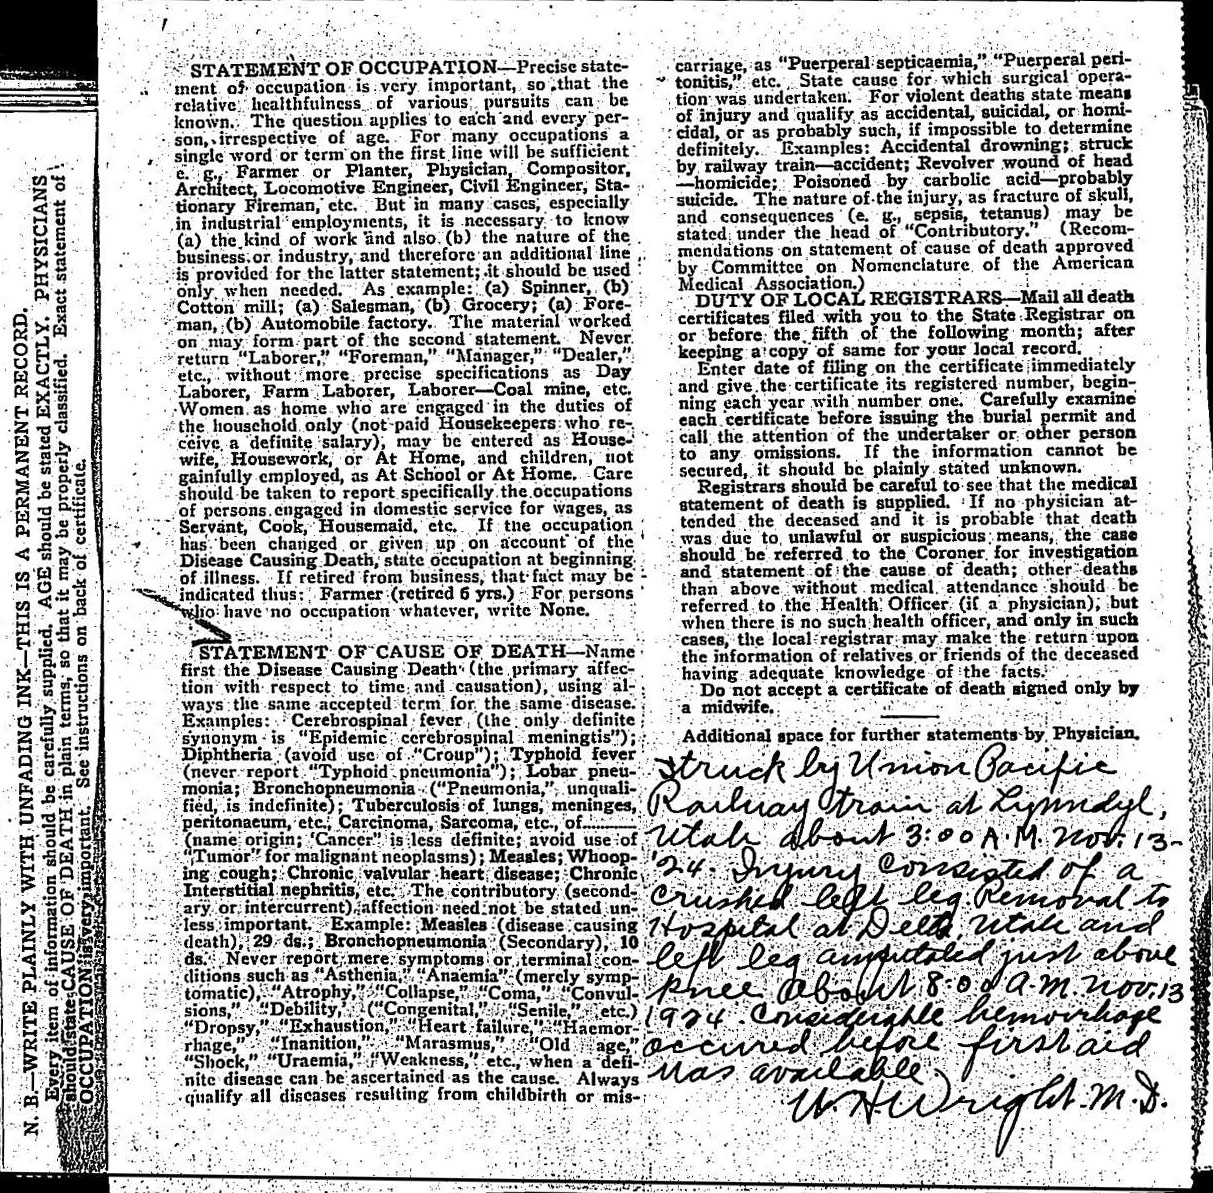 N. B.—WRITE PLAINLY WITH UNFADING INK—THIS IS A PERMANENT RECORD.
Every item of information should be carefully supplied. AGE should be stated EXACTLY. PHYSICIANS
should state CAUSE OF DEATH in plain terms, so that it may be properly classified. Exact statement of
OCCUPATION is very important. See instructions on back of certificate.
STATEMENT OF OCCUPATION—Precise state-
ment of occupation is very important, so that the
relative healthfulness of various pursuits can be
known. The question applies to each and every per-
son, irrespective of age. For many occupations a
single word or term on the first line will be sufficient
e. g., Farmer or Planter, Physician, Compositor,
Architect, Locomotive Engineer, Civil Engineer, Sta-
tionary Fireman, etc. But in many cases, especially
in industrial employments, it is necessary to know
(a) the kind of work and also (b) the nature of the
business or industry, and therefore an additional line
is provided for the latter statement; it should be used
only when needed. As example: (a) Spinner, (b)
Cotton mill; (a) Salesman, (b) Grocery; (a) Fore-
man, (b) Automobile factory. The material worked
on may form part of the second statement. Never
return "Laborer," "Foreman," "Manager," "Dealer,"
etc., without more precise specifications as Day
Laborer, Farm Laborer, Laborer—Coal mine, etc.
Women as home who are engaged in the duties of
the household only (not paid Housekeepers who re-
ceive a definite salary), may be entered as House-
wife, Housework, or At Home, and children, not
gainfully employed, as At School or At Home. Care
should be taken to report specifically the occupations
of persons engaged in domestic service for wages, as
Servant, Cook, Housemaid, etc. If the occupation
has been changed or given up on account of the
Disease Causing Death, state occupation at beginning
of illness. If retired from business, that fact may be
indicated thus: Farmer (retired 6 yrs.) For persons
who have no occupation whatever, write None.
STATEMENT OF CAUSE OF DEATH—Name
first the Disease Causing Death (the primary affec-
tion with respect to time and causation), using al-
ways the same accepted term for the same disease.
Examples: Cerebrospinal fever (the only definite
synonym is "Epidemic cerebrospinal meningtis");
Diphtheria (avoid use of "Croup"); Typhoid fever
(never report "Typhoid pneumonia"); Lobar pneu-
monia; Bronchopneumonia ("Pneumonia," unquali-
fied, is indefinite); Tuberculosis of lungs, meninges,
peritonaeum, etc., Carcinoma, Sarcoma, etc., of..........
(name origin; 'Cancer' is less definite; avoid use of
"Tumor" for malignant neoplasms); Measles; Whoop-
ing cough; Chronic valvular heart disease; Chronic
Interstitial nephritis, etc. The contributory (second-
ary or intercurrent) affection need not be stated un-
less important. Example: Measles (disease causing
death), 29 ds.; Bronchopneumonia (Secondary), 10
ds. Never report mere symptoms or terminal con-
ditions such as "Asthenia," "Anaemia" (merely symp-
tomatic), "Atrophy," "Collapse," "Coma," "Convul-
sions," "Debility," ("Congenital," "Senile," etc.)
"Dropsy," "Exhaustion," "Heart failure," "Haemor-
rhage," "Inanition," "Marasmus," "Old age,"
"Shock," "Uraemia," "Weakness," etc., when a defi-
nite disease can be ascertained as the cause. Always
qualify all diseases resulting from childbirth or mis-
carriage, as "Puerperal septicaemia," "Puerperal peri-
tonitis," etc. State cause for which surgical opera-
tion was undertaken. For violent deaths state means
of injury and qualify as accidental, suicidal, or homi-
cidal, or as probably such, if impossible to determine
definitely. Examples: Accidental drowning; struck
by railway train—accident; Revolver wound of head
—homicide; Poisoned by carbolic acid—probably
suicide. The nature of the injury, as fracture of skull,
and consequences (e. g., sepsis, tetanus) may be
stated under the head of "Contributory." (Recom-
mendations on statement of cause of death approved
by Committee on Nomenclature of the American
Medical Association.)
DUTY OF LOCAL REGISTRARS—Mail all death
certificates filed with you to the State Registrar on
or before the fifth of the following month; after
keeping a copy of same for your local record.
Enter date of filing on the certificate immediately
and give the certificate its registered number, begin-
ning each year with number one. Carefully examine
each certificate before issuing the burial permit and
call the attention of the undertaker or other person
to any omissions. If the information cannot be
secured, it should be plainly stated unknown.
Registrars should be careful to see that the medical
statement of death is supplied. If no physician at-
tended the deceased and it is probable that death
was due to unlawful or suspicious means, the case
should be referred to the Coroner for investigation
and statement of the cause of death; other deaths
than above without medical attendance should be
referred to the Health Officer (if a physician), but
when there is no such health officer, and only in such
cases, the local registrar may make the return upon
the information of relatives or friends of the deceased
having adequate knowledge of the facts.
Do not accept a certificate of death signed only by
a midwife.
Additional space for further statements by Physician.
Struck by Union Pacific
Railway train at Lynndyl,
Utah about 3:00 A.M. Nov. 13-
'24. Injury consisted of a
crushed left leg Removal to
Hospital at Delta, Utah and
left leg amputated just above
knee about 8:00 A.M. Nov. 13
1924. Considerable hemorrhage
occured before first aid
was available.
W. H Wright. M. D.